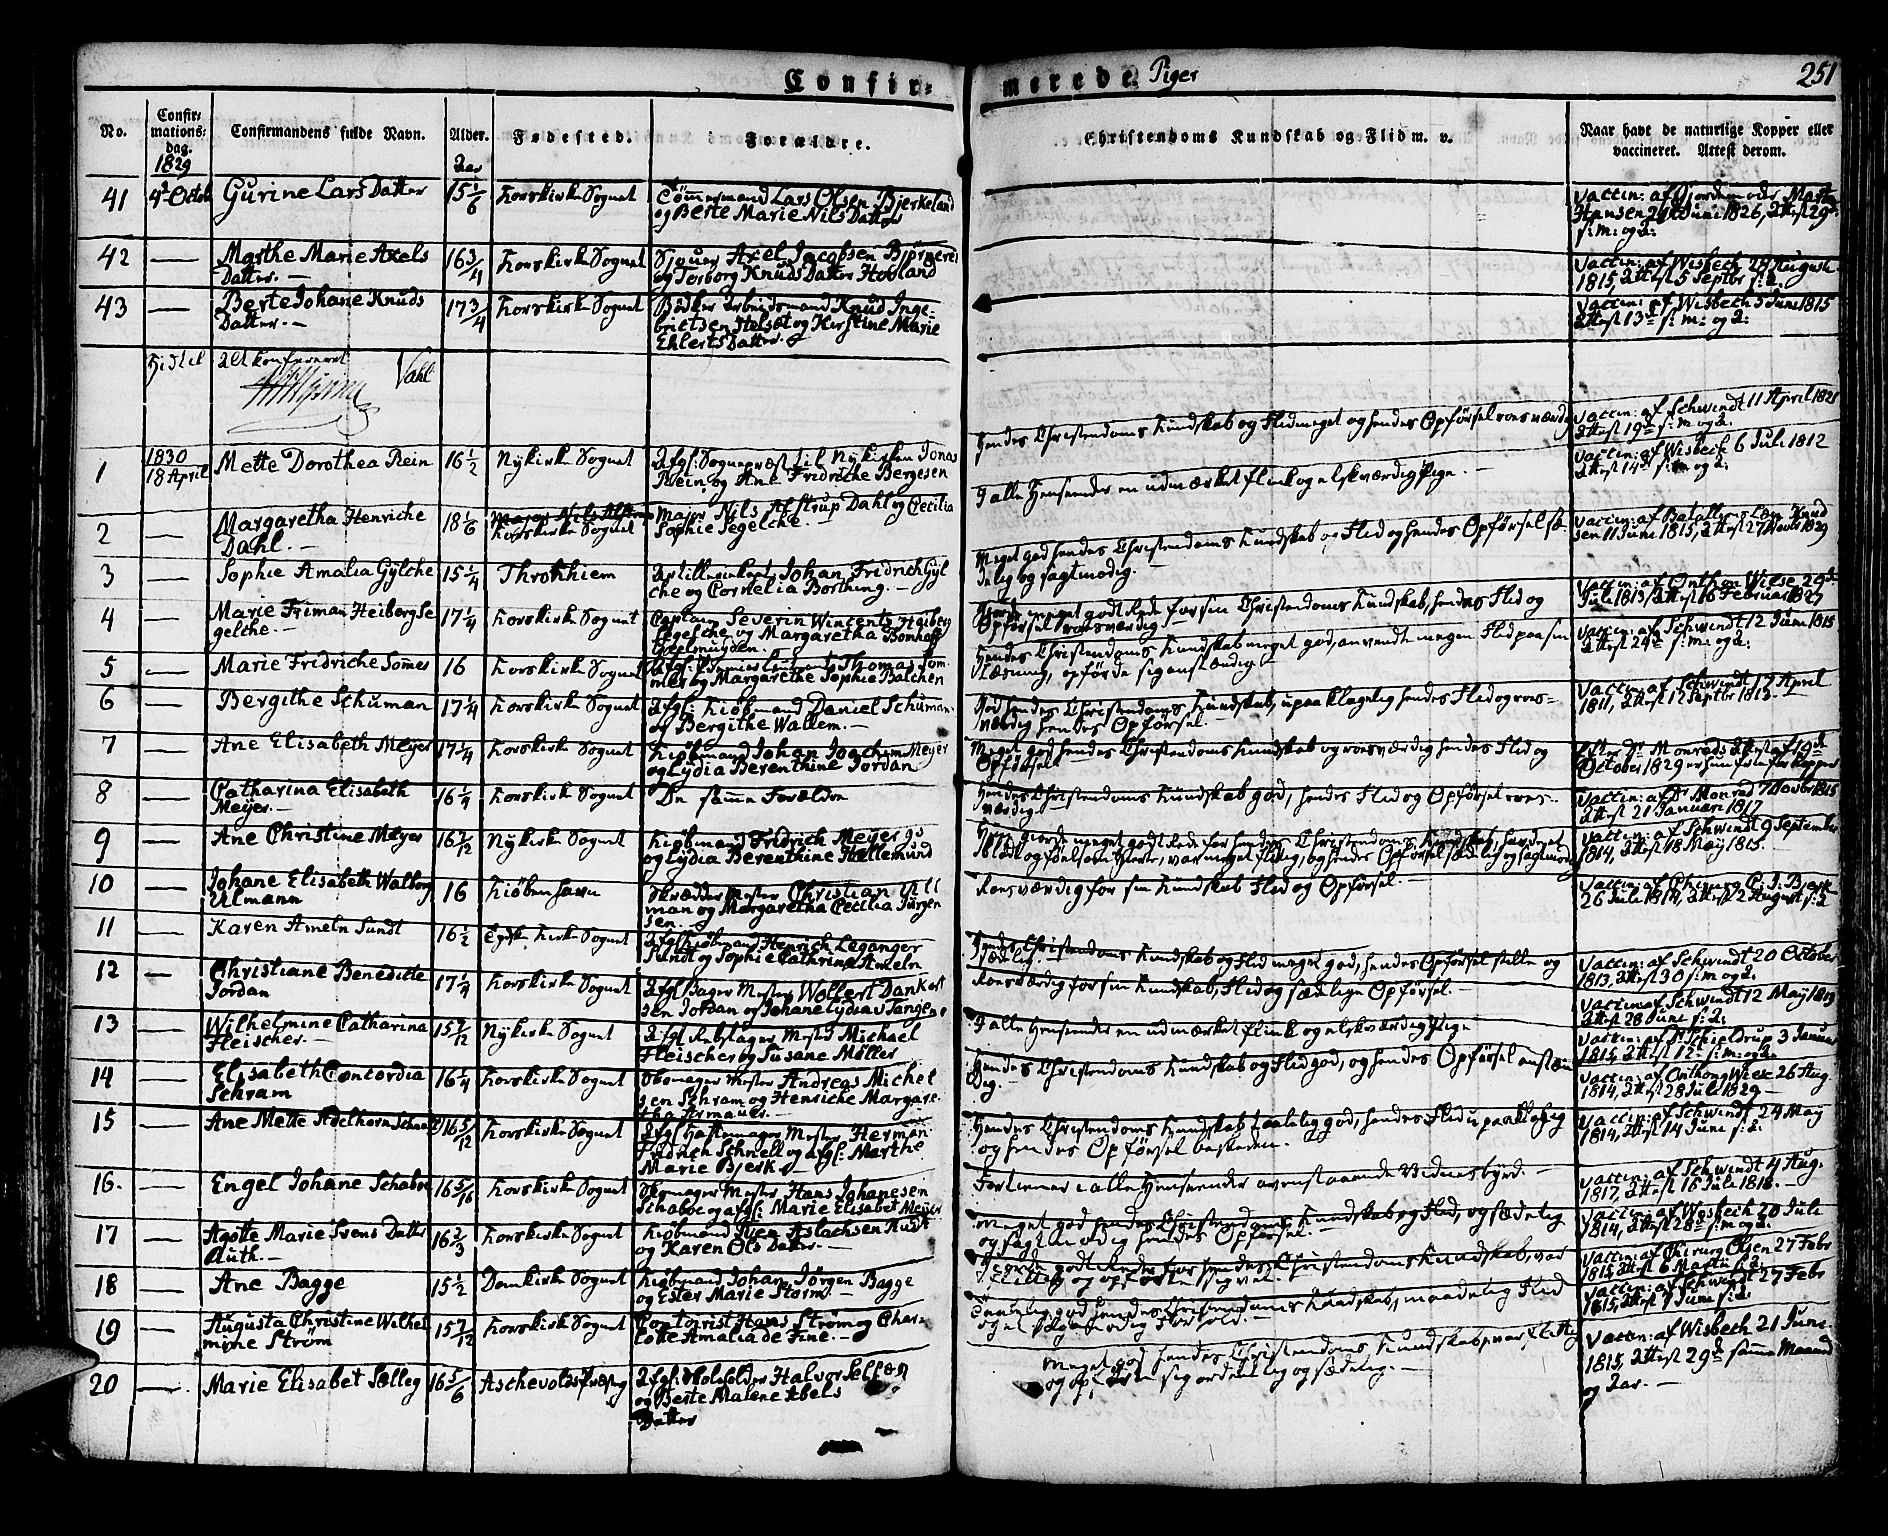 Confir- merede Piger 251
No.
Confir-
mations-
dag.
Confirmandens fulde Navn.
Alder.
Fødested.
Forældre.
Christendoms Kundskab og Flid m. v.
Naar havt de naturlige Kopper eller
vaccineret. Attest derom.
1829
Aar
41 4de Octob Gurine Lars Datter 15 1/6 Korskirke Sognet Tömmermand Lars Olsen Bjerkeland
og Berte Marie Nils Datter
Hansen 24 Juni 1826, Attest 29de
s: m: og A:
42 Marthe Marie Axels
Datter. 16 3/4 Korskirke Sognet Axel Jacobsen
og Torborg Knuds Datter Hovland
Vaccin: af Wisbech 28 August
1815, Attest 5 Septbr s: A.
43 Berte Johane Knuds
Datter. 17 3/4 Korskirke Sognet Bödker Arbeidsmand Knud Inge-
brictsen Helsöt og Kirstine Marie
Ehlerts Datter
Vaccin: af Wisbech 5 Juni 1815
Attest 13de s: m: og A:
Hidtil Alt konfereret
Vahl
Hendes Christendoms Kundskab og Flid meget og hendes Opførsel rosværdig
Vaccin: af Schwindt 11 April 1821
Attest 19de s: m og A.
1830
1 18 April Mette Dorothea Rein 16 1/2 Nykirke Sognet Afgl: Sognepræst til Nykirken Jonas
Rein og Ane Fridriche Bergesen
I alle Henseender en udmærket flink og elskværdig Pige.
Vaccin: af Wisbech 6 Juli 1812
Attest 14de s: m: og A:
2 Margaretha Henriche
Dahl. 18 1/6 Korskirke Sognet Major Nils Alstrup Dahl og Cecilia
Sophie Segelche.
Meget god hendes Christendoms Kundskab og Flid og hendes Opførsel sæ-
delig og sagtmodig.
sen 11 Juni 1815, Attest 27 Novbr 1829
3 Sophie Amalia Gylche 15 1/4 Throndhiem Johan Fridrich Gyl
che og Cornelia Borthing.
Gjorde meget godt Rede for sin Christendoms Kundskab, hendes Flid og
Opførsel rosværdig
Vaccin: af Onthon Wiese 29de
Juli 1813, Attest 16 Februar 1827
4 Marie Friman Heiberg Se
gelche. 17 1/4 Korskirke Sognet Captain Severin Wincents Heiberg
Segelche og Margaretha
Geelmuyden.
Hendes Christendoms Kundskab meget god, anvendte megen Flid paa sin
Læsning, opførde sig anstændig
Vaccin: af Schwindt 12 Juni 1815
Attest 24de s: m: og A:
5 Marie Fridriche Sömes 16 Korskirke Sognet Thomas Som-
mer og Margarethe Sophie Balchen
6 Bergithe Schuman 17 1/4 Korskirke Sognet Afgl: Kiöbmand Daniel Schuman
og Bergithe Wallem.
God hendes Christendoms Kundskab, upaaklagelig hendes Flid og ros-
værdig hendes Opførsel.
Vaccin: af Schwindt 17 April
1811, Attest 17 Septbr 1813
7 Ane Elisabeth Meyer 17 1/4 Korskirke Sognet Kiöbmand Johan Joachim Meyer
og Lydia Berenthine Jordan
Meget god hendes Christendoms Kundskab og rosværdig hendes Flid og
Opførsel
Efter Dr. Monrads Attest af 19de
October 1829 er hun fri for Kopper
8 Catharina Elisabeth
Meyer. 16 1/4 Korskirke Sognet De samme Forældre
Hendes Christendoms Kundskab god, hendes Flid og Opførsel ros-
værdig
Vaccin: af Dr Monrad 7 Novbr 1815
Attest 21 Januari 1817
9 Ane Christine Meyer 16 7/12 Nykirke Sognet Kiöbmand Fridrich Meyer
og Lydia Berenthine Hellemund
Vaccin: af Schwindt 9 September
1814, Attest 18 May 1815.
10 Johane Elisabeth Walborg
Ulmann 16 Kiöbenhavn Skrædder Mester Christian Ull
man og Margaretha Cecilia Jürgen
sen
Rosværdig for sin Kundskab Flid og Opførsel.
26 Juli 1814, Attest 2 August s: A
11 Karen Ameln Sundt 16 1/2 Afgl Kiöbmand Henrich Leganger
Sundt og Sophie Cathrina Ameln
Hendes Christendoms Kundskab og Flid meget god, hendes Opførsel stille og
sædelig.
Vaccin: af Schwindt 20 October
1813, Attest 30 s: m og A:
12 Christiane Benedicte
Jordan 17 1/4 Korskirke Sognet Afgl Bager Mester Wollert Dankert
sen Jordan og Johane Lydia v Tangen
Rosværdig for sin Kundskab, Flid og sædelige Opførsel.
Vaccin af Schwindt 12 May 1819
Attest 28 Juni s: A:
13 Wilhelmine Catharina
Fleischer. 15 7/12 Nykirke Sognet Afgl Rebslager Mester Michael
Fleischer og Susane Möller
I alle Henseender en udmærket flink og elskværdig Pige
Vaccin: af Dr Schieldrup 3 Januar
1815, Attest 12de s: m: og A.
14 Elisabeth Concordia
Schram 16 1/4 Korskirke Sognet Skomager Mester Andreas Michel
sen Schram og Henriche Margare
tha Irmauer.
Hendes Christendoms Kundskab og Flid god, og hendes Opførsel anstæn
dig.
Vaccin: af Onthong Wiese 26 Aug
1814, Attest 28 Juli 1829
15 Ane Mette Adelhorn Schnell 16 5/12 Korskirke Sognet Afgl Hattemager Mester Herman
Fridrich Schnell og afgl: Marthe
Marie Bjerk
Hendes Christendoms Kundskab taalelig god, hendes Flid upaaklagelig
og hendes Opførsel beskeden.
Vaccin: af Schwindt 24 May
1814, Attest 14 Juni s: A:
16. Engel Johane Schaboe 16 5/16 Korskirke Sognet Skomager Mester Hans Johanesen
Schaboe og afgl: Marie Elisabet Meyer
Fortiener i alle Henseender ovenstaaende Vidnesbyrd.
Vaccin: af Schwindt 4 Aug.
1817, Attest 16 Juli 1818.
17 Agotte Marie Svens Datter
Ruth. 16 2/3 Korskirke Sognet Kiöbmand Sven Aslachsen Rudt
og Karen Ols Datter.
Meget god hendes Christendoms Kundskab og Flid, og sædelig
og sagtmodig hendes Opførsel.
Vaccin: af Wisbech 20 Juli
1814, Attest 28de s: m og A:
18 Ane Bagge 15 1/2 Domkirke Sognet Kiöbmand Johan Jörgen Bagge
og Ester Marie Storm.
Gjorde godt Rede for hendes Christendoms Kundskab, var
flittig og opførte sig vel.
Vaccin: af Chirurg Olsen 27 Febr
1815, Attest 6 Marti s: A.
19 Augusta Christine Wilhel
mine Ström 15 7/12 Korskirke Sognet Contoirist Hans Ström og Char-
lotte Amalia de Fine.
Taalelig god hendes Christendoms Kundskab, maadelig Flid
Vaccin: af Schwindt 27 Febr
1815, Attest 7 Juni s: A
20 Marie Elisabet Sælleg 16 5/6 Aschevolds Præstg Afgl: Halvor
og Berte Malene Abels
Datter
Meget god hendes Christendoms Kundskab, var flittig
og opførte sig ordentlig og sædelig.
Vaccin: af Wisbech 21 Juni
1815, Attest 29de samme Maaned
og Aar.